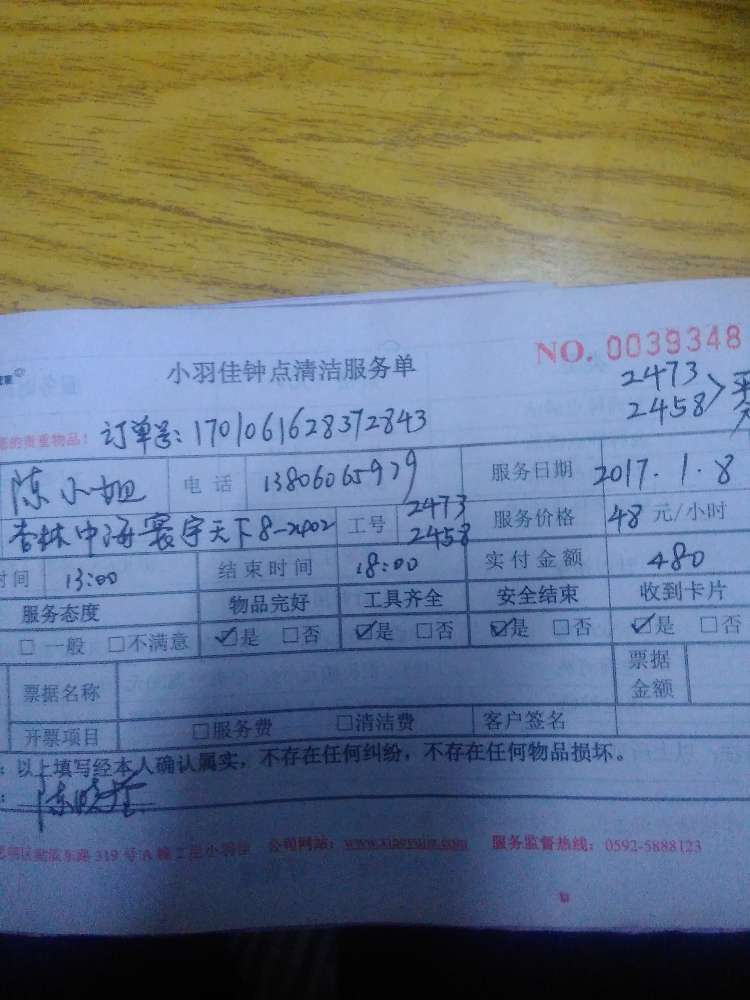 小羽佳钟点清洁服务单 NO. 0039348
2473
2458
您的贵重物品! 订单号: 1701061628372843
陈小姐 电话 13806065979 服务日期 2017.1.8
杏林中海寰宇天下8-2402 工号 2473 2458 服务价格 48 元/小时
时间 13:00 结束时间 18:00 实付金额 480
服务态度 物品完好 工具齐全 安全结束 收到卡片
□一般 □不满意 ☑是 □否 ☑是 □否 ☑是 □否 ☑是 □否
票据名称 票据金额
开票项目 □服务费 □清洁费 客户签名
: 以上填写经本人确认属实,不存在任何纠纷,不存在任何物品损坏。
: 陈晓
东路 319 号 A 幢 小羽佳 公司网站: 服务监督热线: 0592-5888123